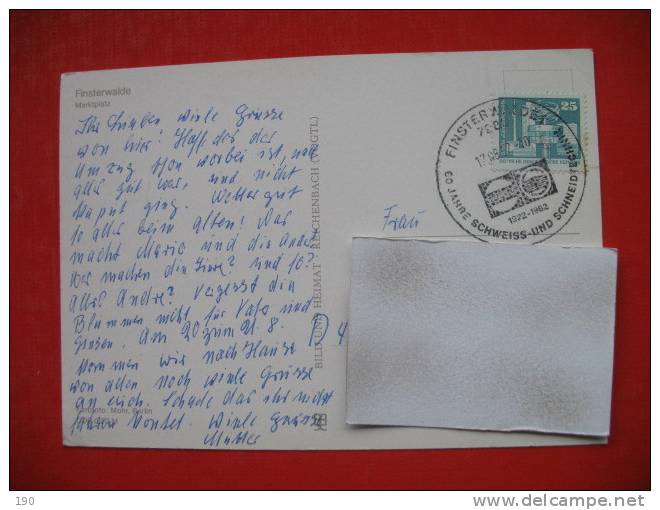 Finsterwalde
Marktplatz
Ihr Lieben viele Grüsse
von hier! Hoff das der
Umzug schon vorbei ist, und
alles gut war, und nicht
kaput ging. Wetter gut
so alles beim alten! Was
macht Mario und die Andere
Was machen die Tiere? und so?
Alles Andre? Vergesst die
Blummen nicht für Vati und
Am 20 zum 21. 8.
kommen wir nach Hause
von allen noch viele Grüsse
an eich. Schade das ihr nicht
Viele Grüsse
Mutter
Mohr, Berlin
BILD UND HEIMAT REICHENBACH (VOGTL)
Frau
25
FINSTERWALDE 1
60 JAHRE SCHWEISS-UND SCHNEIDTECHNIK
1922-1982
190
www.delcampe.net